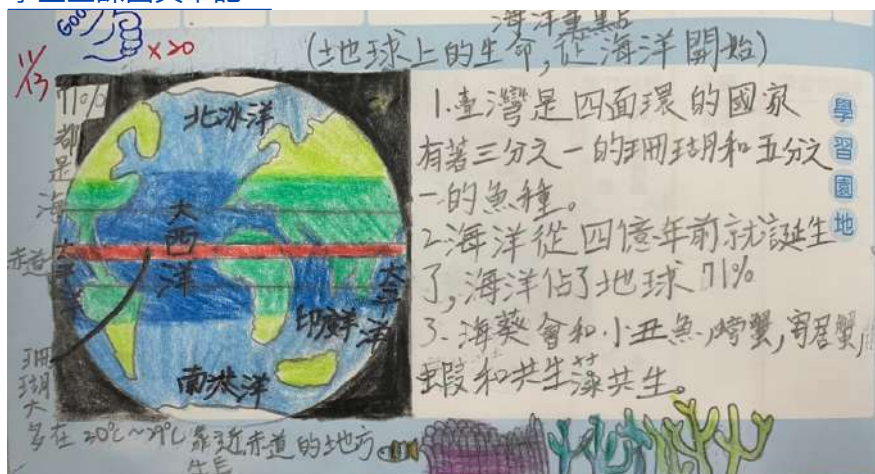 GOOD
×20
11/13
海洋重點
(地球上的生命,從海洋開始)
71%都是海
北冰洋
大西洋
赤道
太平洋
太平洋
印度洋
南洪洋
珊瑚大多在20℃~29℃靠近赤道的地方生長
1.臺灣是四面環的國家
有著三分之一的珊瑚和五分之
一的魚種。
2.海洋從四億年前就誕生
了,海洋佔了地球71%
3.海葵會和小丑魚,螃蟹,寄居蟹,
蝦和共生藻共生。
學習園地